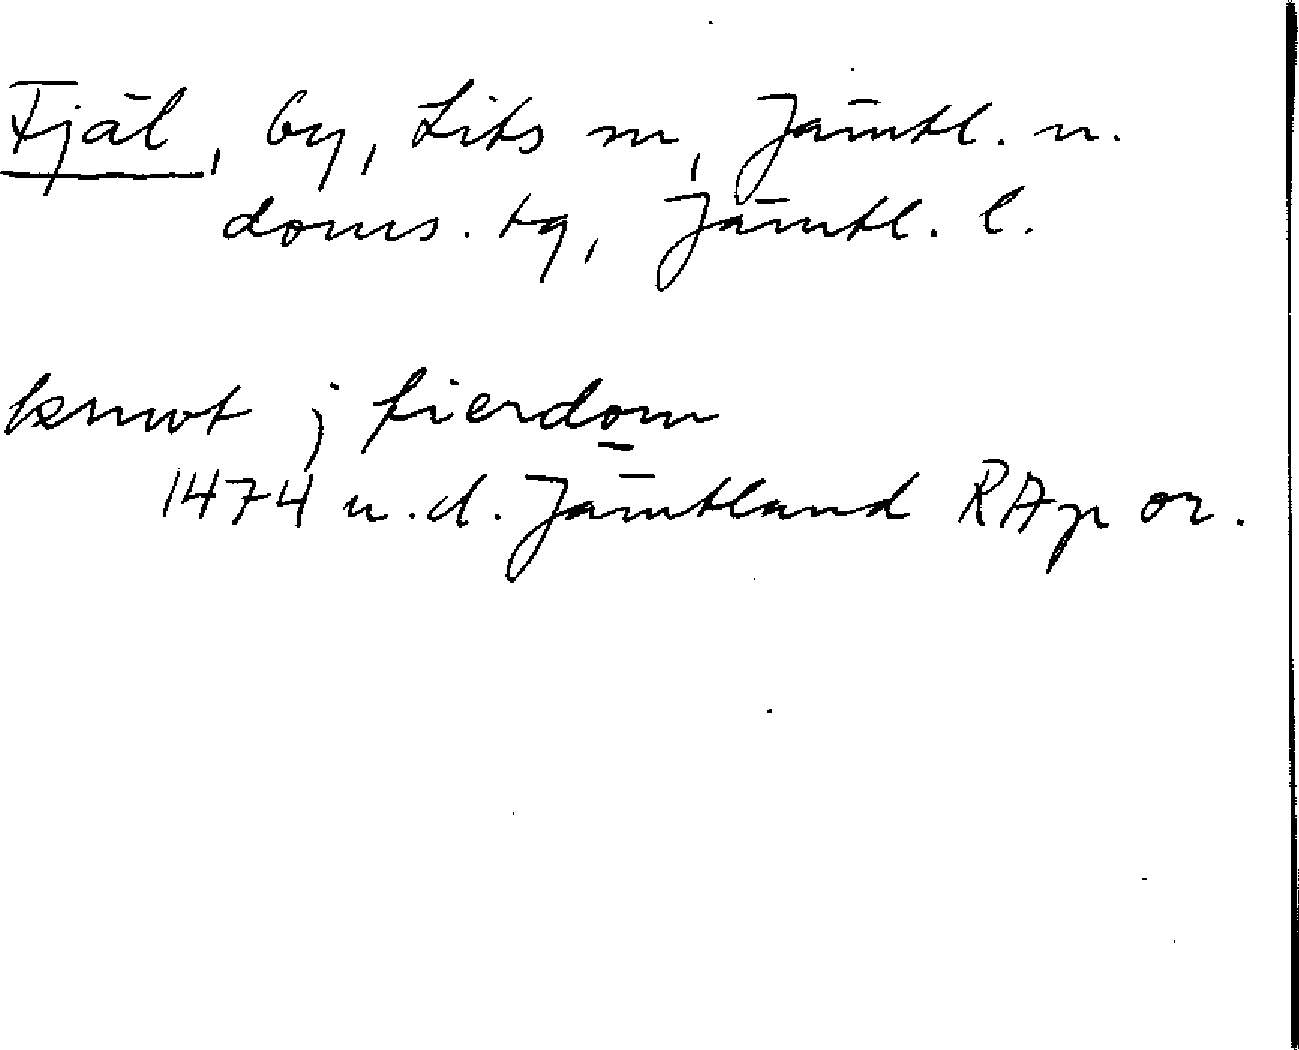 Fjäl, by, Lits sn, Jämtl. n.
doms. tg, Jämtl. l.
knwt j fierdom
1474 u.d. Jämtland RAp or.